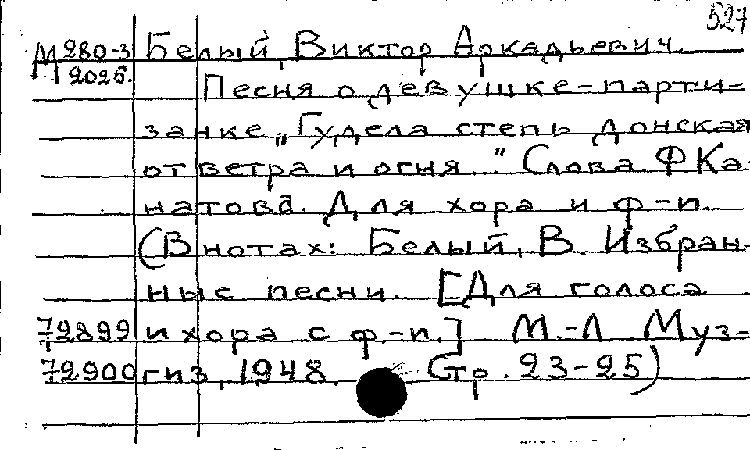 527
М 280-3 Белый, Виктор Аркадьевич.
2025.
Песня о девушке-парти-
занке "Гудела степь донская
от ветра и огня..." Слова Ф Ка-
натова. Для хора и ф-п.
(В нотах: Белый, В. Избран-
ные песни. [Для голоса
72899 и хора с ф.-п.] М.-Л Муз-
72900 гиз, 1948. Стр. 23-25)